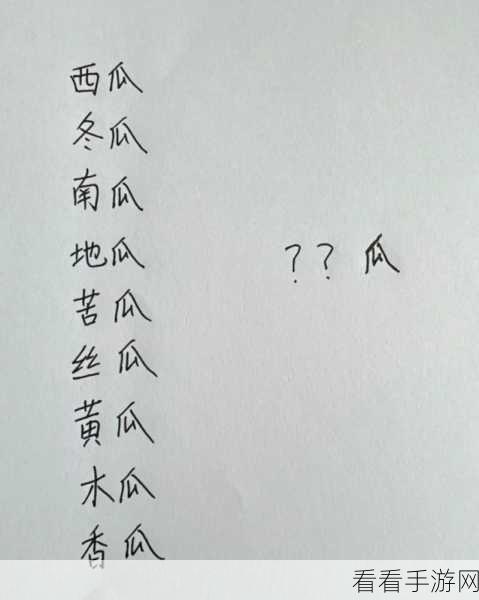 西瓜
冬瓜
南瓜
地瓜
？？瓜
苦瓜
丝瓜
黄瓜
木瓜
香瓜
看看手游网